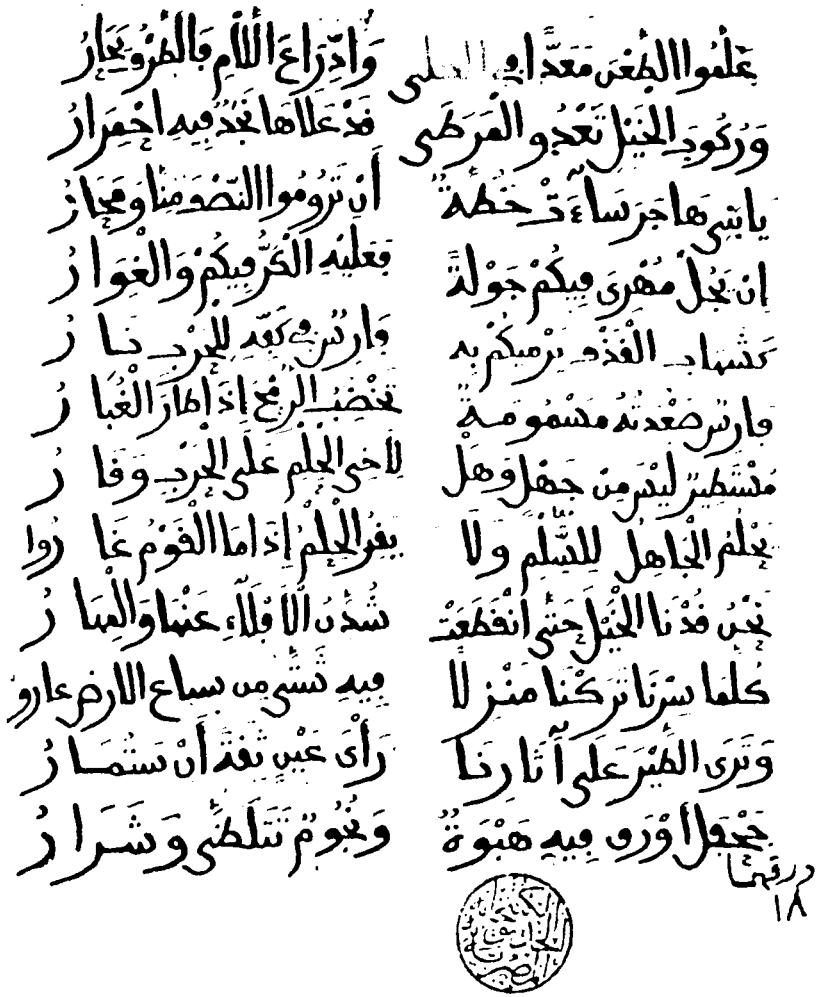 عَلَّمُوا الطَّعْنَ مَعَدًّا في الكلى وَادِّرَاعَ اللَّأْمِ فَالطَّرْفُ يَحَارُ
وَرُكُوبَ الخَيْلِ تَعْدُو الْمَرَطَى قَدْ عَلَاهَا نَجَدٌ فِيهِ احْمِرَارُ
يا بَنِي هَاجَرَ سَآءَتْ خُطَّةً أَنْ تَرُومُوا النِّصْفَ مِنَّا وَمجَارُ
إِنْ يَجُلْ مُهْرِى فِيكُمْ جَوْلَةً فَعَلَيْهِ الْكَرُّ فِيكُمْ وَالْغِوَارُ
كشهابِ الْقَذْفِ يَرْمِيكُمْ بِهِ فَارِسٌ فِي كَفِّهِ لِلْحَرْبِ نَارُ
فَارِسٌ صَعْدَتُهُ مَسْمُومَةٌ تَخْضِبُ الرُّمْحَ إِذَا طَارَ الْغُبَارُ
مُسْتَطِيرٌ لَيْسَ مِنْ جَهْلٍ وَهَلْ لِأَخِي الْحِلْمِ عَلَى الْحَرْبِ وَقَارُ
يَحْلُمُ الْجَاهِلُ لِلسَّلْمِ وَلَا يَقِرُ الْحِلْمُ إِذَا مَا الْقَوْمُ غَارُوا
نَحْنُ قُدْنَا الْخَيْلَ حَتَّى انْقَطَعَتْ شُدُنُ الْأَفْلَاءِ عَنْهَا وَالْمِهَارُ
كُلَّمَا سِرْنَا تَرَكْنَا مَنْزِلًا فِيهِ شَتَّى مِن سباع الارض عاروا
وَتَرَى الطَّيْرَ عَلَى آثَارِنَا رَأْىَ عَيْنٍ ثِقَةً أَنْ سَتُمَارُ
جَحْفَلٌ أَوْرَقُ فِيهِ هَبْوَةٌ وَنُجُومٌ تَتَلَظَّى وَشَرَارُ
١٨